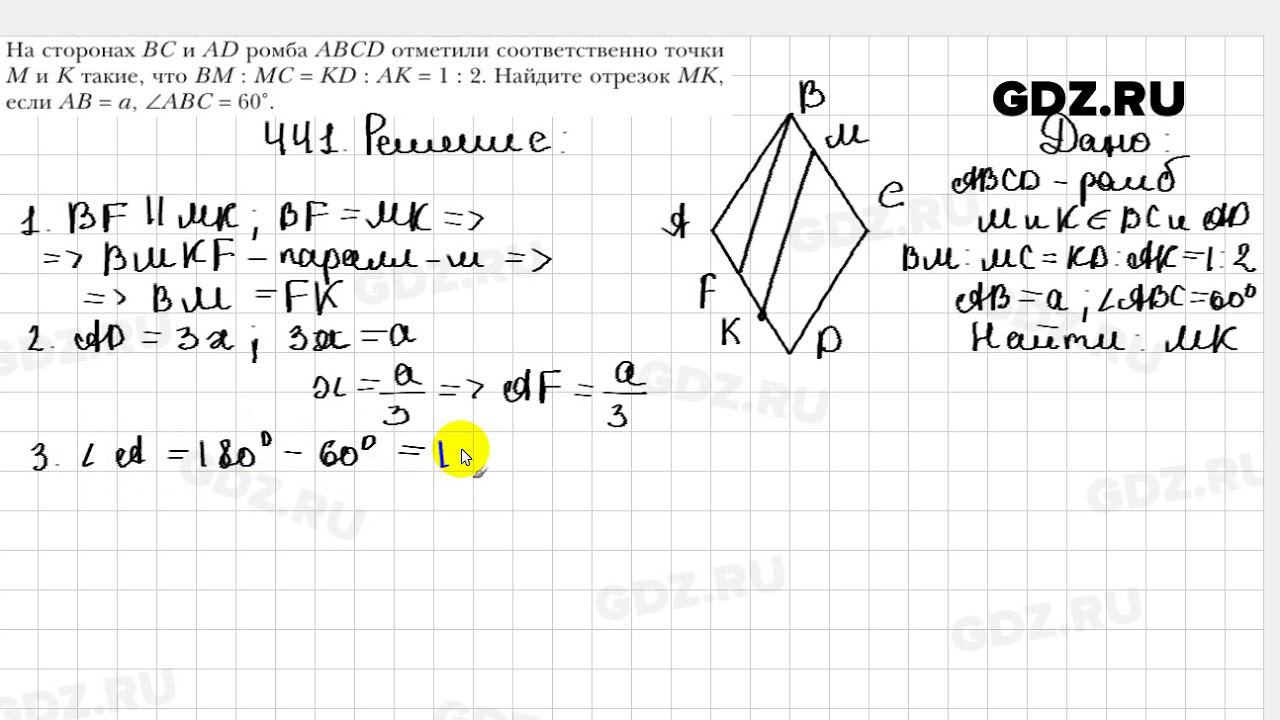 На сторонах BC и AD ромба ABCD отметили соответственно точки
M и K такие, что BM : MC = KD : AK = 1 : 2. Найдите отрезок MK,
если AB = a, ∠ABC = 60°.
GDZ.RU
441. Решение:
Дано:
ABCD - ромб
M и K ∈ BC и AD
BM : MC = KD : AK = 1 : 2
AB = a ; ∠ABC = 60°
Найти: MK
B
M
C
A
F
K
D
1. BF || MK ; BF = MK =>
=> BMKF - паралл-м =>
=> BM = FK
2. AD = 3x ; 3x = a
x = a/3 => AF = a/3
3. ∠A = 180° - 60° = 1
GDZ.RU
GDZ.RU
GDZ.RU
GDZ.RU
GDZ.RU
GDZ.RU
GDZ.RU
GDZ.RU
GDZ.RU
GDZ.RU